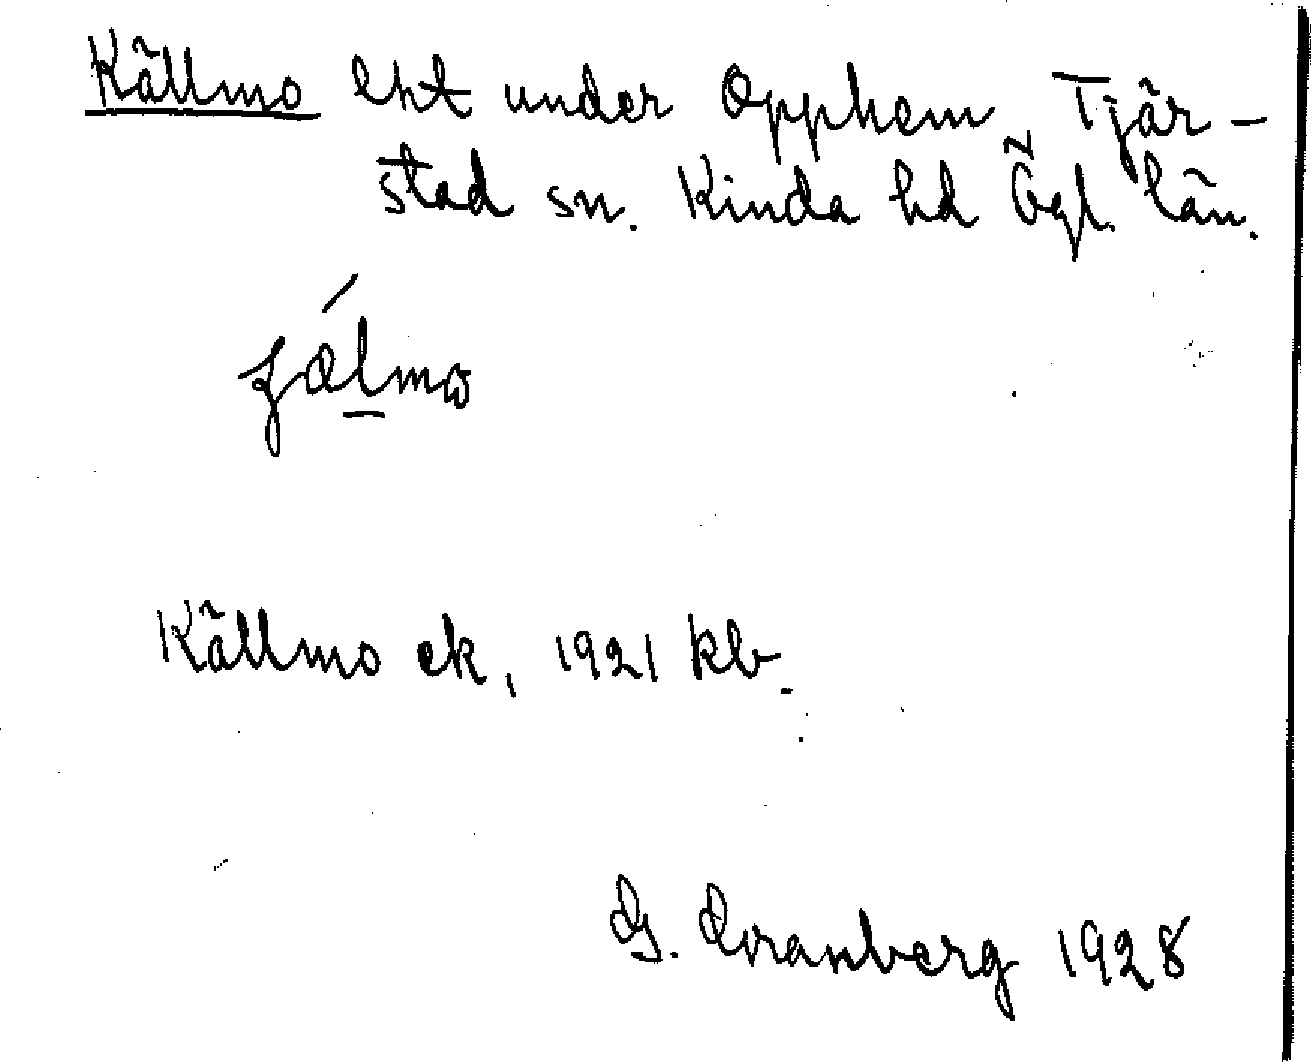 Källmo lht under Opphem, Tjär-
stad sn. Kinda hd Ögl. län.
Källmo ek, 1921 kb.
G. Dranberg 1928